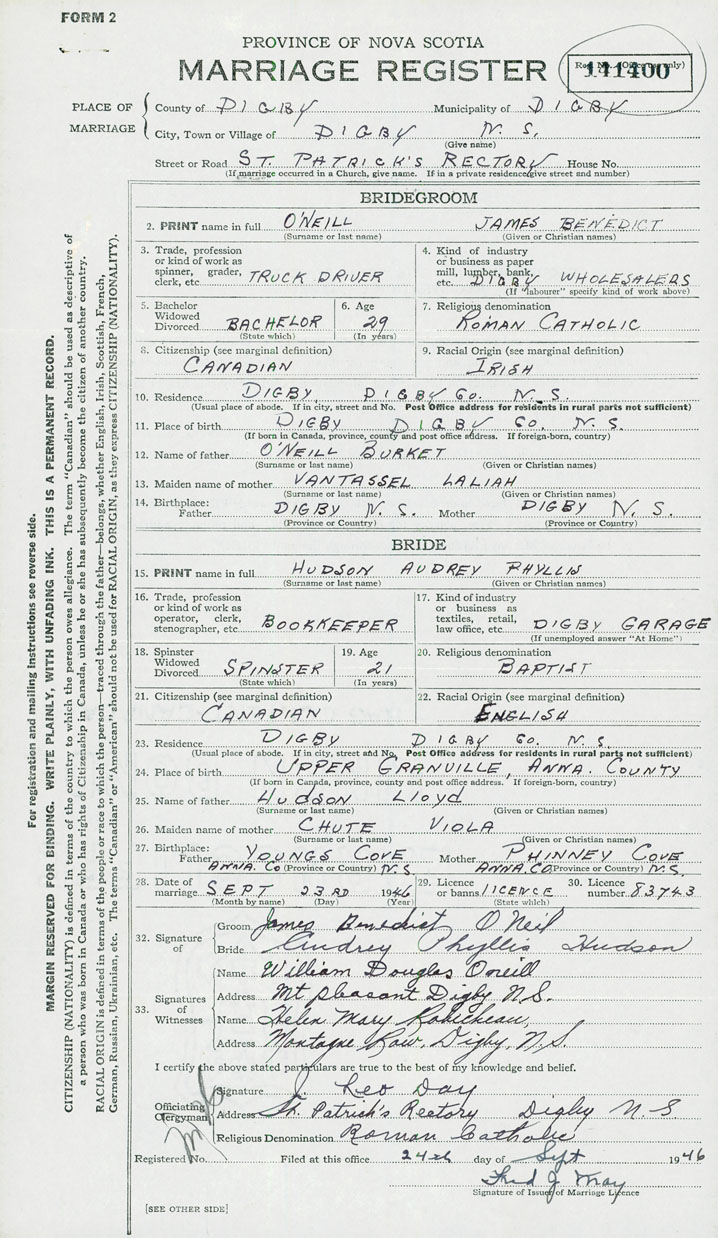 FORM 2
PROVINCE OF NOVA SCOTIA
MARRIAGE REGISTER
141400
PLACE OF MARRIAGE
County of DIGBY Municipality of DIGBY
City, Town or Village of DIGBY N. S.
(Give name)
Street or Road ST. PATRICK'S RECTORY House No.
(If marriage occurred in a Church, give name. If in a private residence give street and number)
BRIDEGROOM
2. PRINT name in full O'NEILL JAMES BENEDICT
(Surname or last name) (Given or Christian names)
3. Trade, profession or kind of work as spinner, grader, clerk, etc. TRUCK DRIVER
4. Kind of industry or business as paper mill, lumber, bank, etc. DIGBY WHOLESALERS
(If "labourer" specify kind of work above)
5. Bachelor Widowed Divorced BACHELOR
(State which)
6. Age 29
(In years)
7. Religious denomination ROMAN CATHOLIC
8. Citizenship (see marginal definition) CANADIAN
9. Racial Origin (see marginal definition) IRISH
10. Residence DIGBY, DIGBY Co. N. S.
(Usual place of abode. If in city, street and No. Post Office address for residents in rural parts not sufficient)
11. Place of birth DIGBY DIGBY Co. N. S.
(If born in Canada, province, county and post office address. If foreign-born, country)
12. Name of father O'NEILL BURKET
(Surname or last name) (Given or Christian names)
13. Maiden name of mother VANTASSEL LALIAH
(Surname or last name) (Given or Christian names)
14. Birthplace: Father DIGBY N. S. Mother DIGBY N. S.
(Province or Country) (Province or Country)
BRIDE
15. PRINT name in full HUDSON AUDREY PHYLLIS
(Surname or last name) (Given or Christian names)
16. Trade, profession or kind of work as operator, clerk, stenographer, etc. BOOKKEEPER
17. Kind of industry or business as textiles, retail, law office, etc. DIGBY GARAGE
(If unemployed answer "At Home")
18. Spinster Widowed Divorced SPINSTER
(State which)
19. Age 21
(In years)
20. Religious denomination BAPTIST
21. Citizenship (see marginal definition) CANADIAN
22. Racial Origin (see marginal definition) ENGLISH
23. Residence DIGBY DIGBY Co. N. S.
(Usual place of abode. If in city, street and No. Post Office address for residents in rural parts not sufficient)
24. Place of birth UPPER GRANVILLE, ANNA. COUNTY
(If born in Canada, province, county and post office address. If foreign-born, country)
25. Name of father Hudson Lloyd
(Surname or last name) (Given or Christian names)
26. Maiden name of mother CHUTE VIOLA
(Surname or last name) (Given or Christian names)
27. Birthplace: Father YOUNGS COVE Mother PHINNEY COVE
ANNA. Co (Province or Country) N. S. ANNA. CO (Province or Country) N. S.
28. Date of marriage SEPT 23RD 1946
(Month by name) (Day) (Year)
29. Licence or banns LICENCE
(State which)
30. Licence number 83743
32. Signature of
Groom James Benedict O'Neil
Bride Audrey Phyllis Hudson
33. Signatures of Witnesses
Name William Douglas Oneill
Address Mt pleasant Digby N.S.
Name Helen Mary Robicheau,
Address Montague Row, Digby, N.S.
I certify the above stated particulars are true to the best of my knowledge and belief.
Officiating Clergyman
Signature J. Leo Day
Address St. Patrick's Rectory Digby N S
Religious Denomination Roman Catholic
Registered No. Filed at this office 24th day of Sept 1946
Fred J. May
Signature of Issuer of Marriage Licence
[SEE OTHER SIDE]
For registration and mailing instructions see reverse side.
MARGIN RESERVED FOR BINDING. WRITE PLAINLY, WITH UNFADING INK. THIS IS A PERMANENT RECORD.
CITIZENSHIP (NATIONALITY) is defined in terms of the country to which the person owes allegiance. The term "Canadian" should be used as descriptive of
a person who was born in Canada or who has rights of Citizenship in Canada, unless he or she has subsequently become the citizen of another country.
RACIAL ORIGIN is defined in terms of the people or race to which the person—traced through the father—belongs, whether English, Irish, Scottish, French,
German, Russian, Ukrainian, etc. The terms "Canadian" or "American" should not be used for RACIAL ORIGIN, as they express CITIZENSHIP (NATIONALITY).